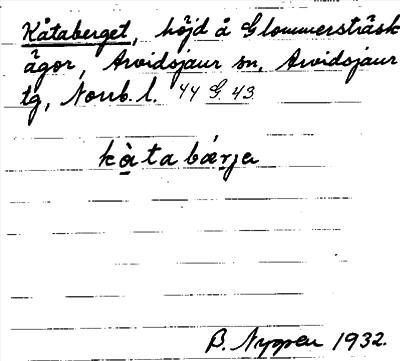 Kåtaberget, höjd å Glommersträsk
ägor, Arvidsjaur sn, Arvidsjaur
tg, Norrb. l. 44 G. 43
kòta bǽrja
B. Nygren 1932.